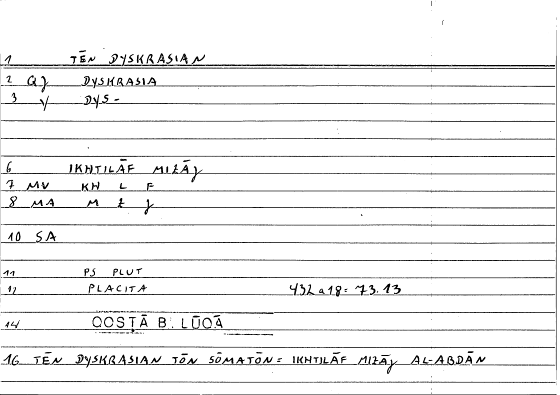 1 TĒN DYSKRASIAN
2 QJ DYSKRASIA
3 Y DYS-
6 IKHTILĀF MIZĀJ
7 MV KH L F
8 MA M Z J
10 SA
11 PS PLUT
12 PLACITA 432a18 = 73.13
14 QOSṬĀ B. LŪQĀ
16 TĒN DYSKRASIAN TŌN SŌMATŌN = IKHTILĀF MIZĀJ AL-ABDĀN